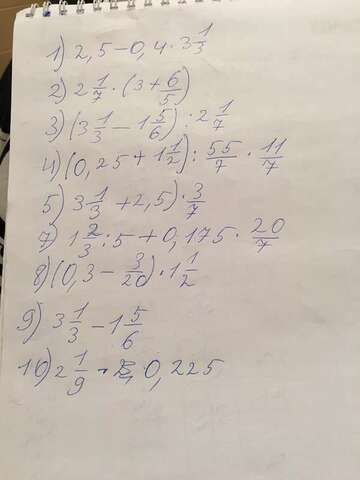 1) 2,5-0,4·3 1/3
2) 2 1/7·(3+6/5)
3) (3 1/3-1 5/6):2 1/7
4) (0,25+1 1/2):55/7·11/7
5) 3 1/3+2,5)·3/7
7) 1 2/3:5+0,175·20/7
8) (0,3-3/20)·1 1/2
9) 3 1/3-1 5/6
10) 2 1/9 - 0,225